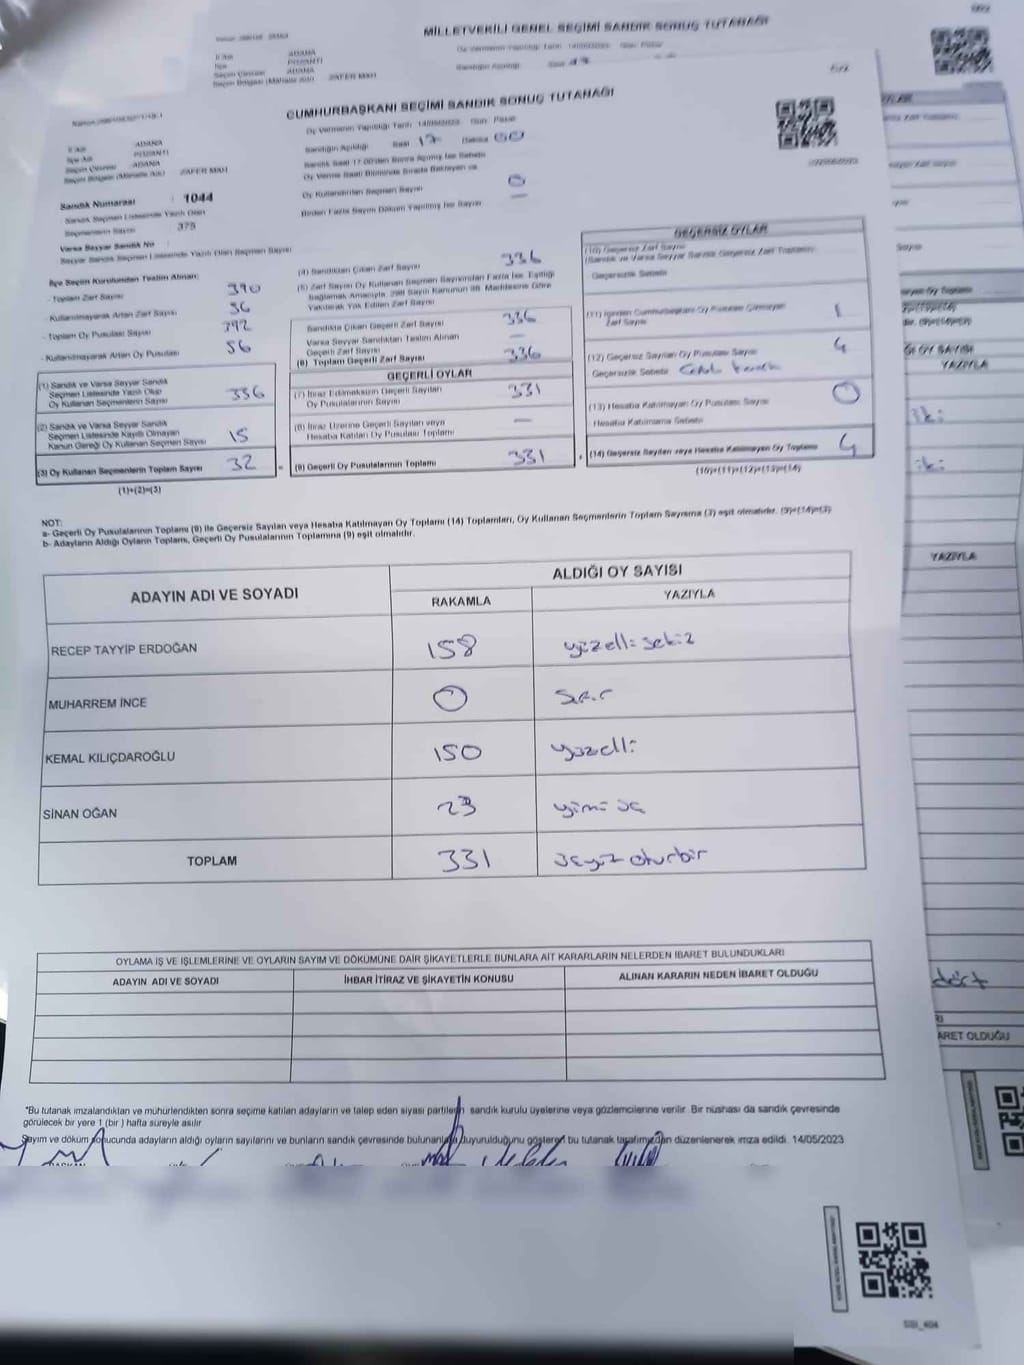 MİLLETVEKİLİ GENEL SEÇİMİ SANDIK SONUÇ TUTANAĞI
ADANA
POZANTI
ADANA
ZAFER MAH
CUMHURBAŞKANI SEÇİMİ SANDIK SONUÇ TUTANAĞI
Oy Vermenin Yapıldığı Tarih 14/05/2023 Gün Pazar
Sandığın Açıldığı Saat 17 Dakika 00
İli Adı ADANA
İlçe Adı POZANTI
Seçim Çevresi ADANA
Seçim Bölgesi (Mahalle /Köy) ZAFER MAH
Sandık Saat 17.00'den Sonra Açılmış İse Sebebi
Oy Verme Saati Bitiminde Sırada Bekleyen ve
Oy Kullandırılan Seçmen Sayısı 0
Birden Fazla Sayım Döküm Yapılmış İse Sayısı —
Sandık Numarası : 1044
Sandık Seçmen Listesinde Yazılı Olan
Seçmenlerin Sayısı : 375
Varsa Seyyar Sandık No :
Seyyar Sandık Seçmen Listesinde Yazılı Olan Seçmen Sayısı
İlçe Seçim Kurulundan Teslim Alınan:
- Toplam Zarf Sayısı 390
- Kullanılmayarak Artan Zarf Sayısı 56
- Toplam Oy Pusulası Sayısı 392
- Kullanılmayarak Artan Oy Pusulası 56
(1) Sandık ve Varsa Seyyar Sandık
Seçmen Listesinde Yazılı Olup
Oy Kullanan Seçmenlerin Sayısı 336
(2) Sandık ve Varsa Seyyar Sandık
Seçmen Listesinde Kayıtlı Olmayan
Kanun Gereği Oy Kullanan Seçmen Sayısı 15
(3) Oy Kullanan Seçmenlerin Toplam Sayısı 32
(1)+(2)=(3)
(4) Sandıktan Çıkan Zarf Sayısı 336
(5) Zarf Sayısı Oy Kullanan Seçmen Sayısından Fazla İse, Eşitliği
Sağlamak Amacıyla, 298 Sayılı Kanunun 98. Maddesine Göre
Yakılarak Yok Edilen Zarf Sayısı
Sandıkta Çıkan Geçerli Zarf Sayısı 336
Varsa Seyyar Sandıktan Teslim Alınan
Geçerli Zarf Sayısı —
(6) Toplam Geçerli Zarf Sayısı 336
GEÇERLİ OYLAR
(7) İtiraz Edilmeksizin Geçerli Sayılan
Oy Pusulalarının Sayısı 331
(8) İtiraz Üzerine Geçerli Sayılan veya
Hesaba Katılan Oy Pusulası Toplamı —
= (9) Geçerli Oy Pusulalarının Toplamı 331
GEÇERSİZ OYLAR
(10) Geçersiz Zarf Sayısı
(Sandık ve Varsa Seyyar Sandık Geçersiz Zarf Toplamı)
Geçersizlik Sebebi
(11) İçinden Cumhurbaşkanı Oy Pusulası Çıkmayan
Zarf Sayısı 1
(12) Geçersiz Sayılan Oy Pusulası Sayısı 4
Geçersizlik Sebebi
(13) Hesaba Katılmayan Oy Pusulası Sayısı 0
Hesaba Katılmama Sebebi
+ (14) Geçersiz Sayılan veya Hesaba Katılmayan Oy Toplamı 4
(10)+(11)+(12)+(13)=(14)
NOT:
a- Geçerli Oy Pusulalarının Toplamı (9) ile Geçersiz Sayılan veya Hesaba Katılmayan Oy Toplamı (14) Toplamları, Oy Kullanan Seçmenlerin Toplam Sayısına (3) eşit olmalıdır. (9)+(14)=(3)
b- Adayların Aldığı Oyların Toplamı, Geçerli Oy Pusulalarının Toplamına (9) eşit olmalıdır.
ADAYIN ADI VE SOYADI
ALDIĞI OY SAYISI
RAKAMLA YAZIYLA
RECEP TAYYİP ERDOĞAN 158 yüzelli sekiz
MUHARREM İNCE 0 Sıfır
KEMAL KILIÇDAROĞLU 150 yüzelli
SİNAN OĞAN 23 yirmi üç
TOPLAM 331 üçyüz oturbir
OYLAMA İŞ VE İŞLEMLERİNE VE OYLARIN SAYIM VE DÖKÜMÜNE DAİR ŞİKAYETLERLE BUNLARA AİT KARARLARIN NELERDEN İBARET BULUNDUKLARI
ADAYIN ADI VE SOYADI İHBAR İTİRAZ VE ŞİKAYETİN KONUSU ALINAN KARARIN NEDEN İBARET OLDUĞU
*Bu tutanak imzalandıktan ve mühürlendikten sonra seçime katılan adayların ve talep eden siyasi partilerin sandık kurulu üyelerine veya gözlemcilerine verilir. Bir nüshası da sandık çevresinde
görülecek bir yere 1 (bir ) hafta süreyle asılır
Sayım ve döküm sonucunda adayların aldığı oyların sayılarını ve bunların sandık çevresinde bulunanlara duyurulduğunu gösteren bu tutanak tarafımızdan düzenlenerek imza edildi. 14/05/2023
BAŞKAN
YAZIYLA
iki
iki
YAZIYLA
dört
ARET OLDUĞU